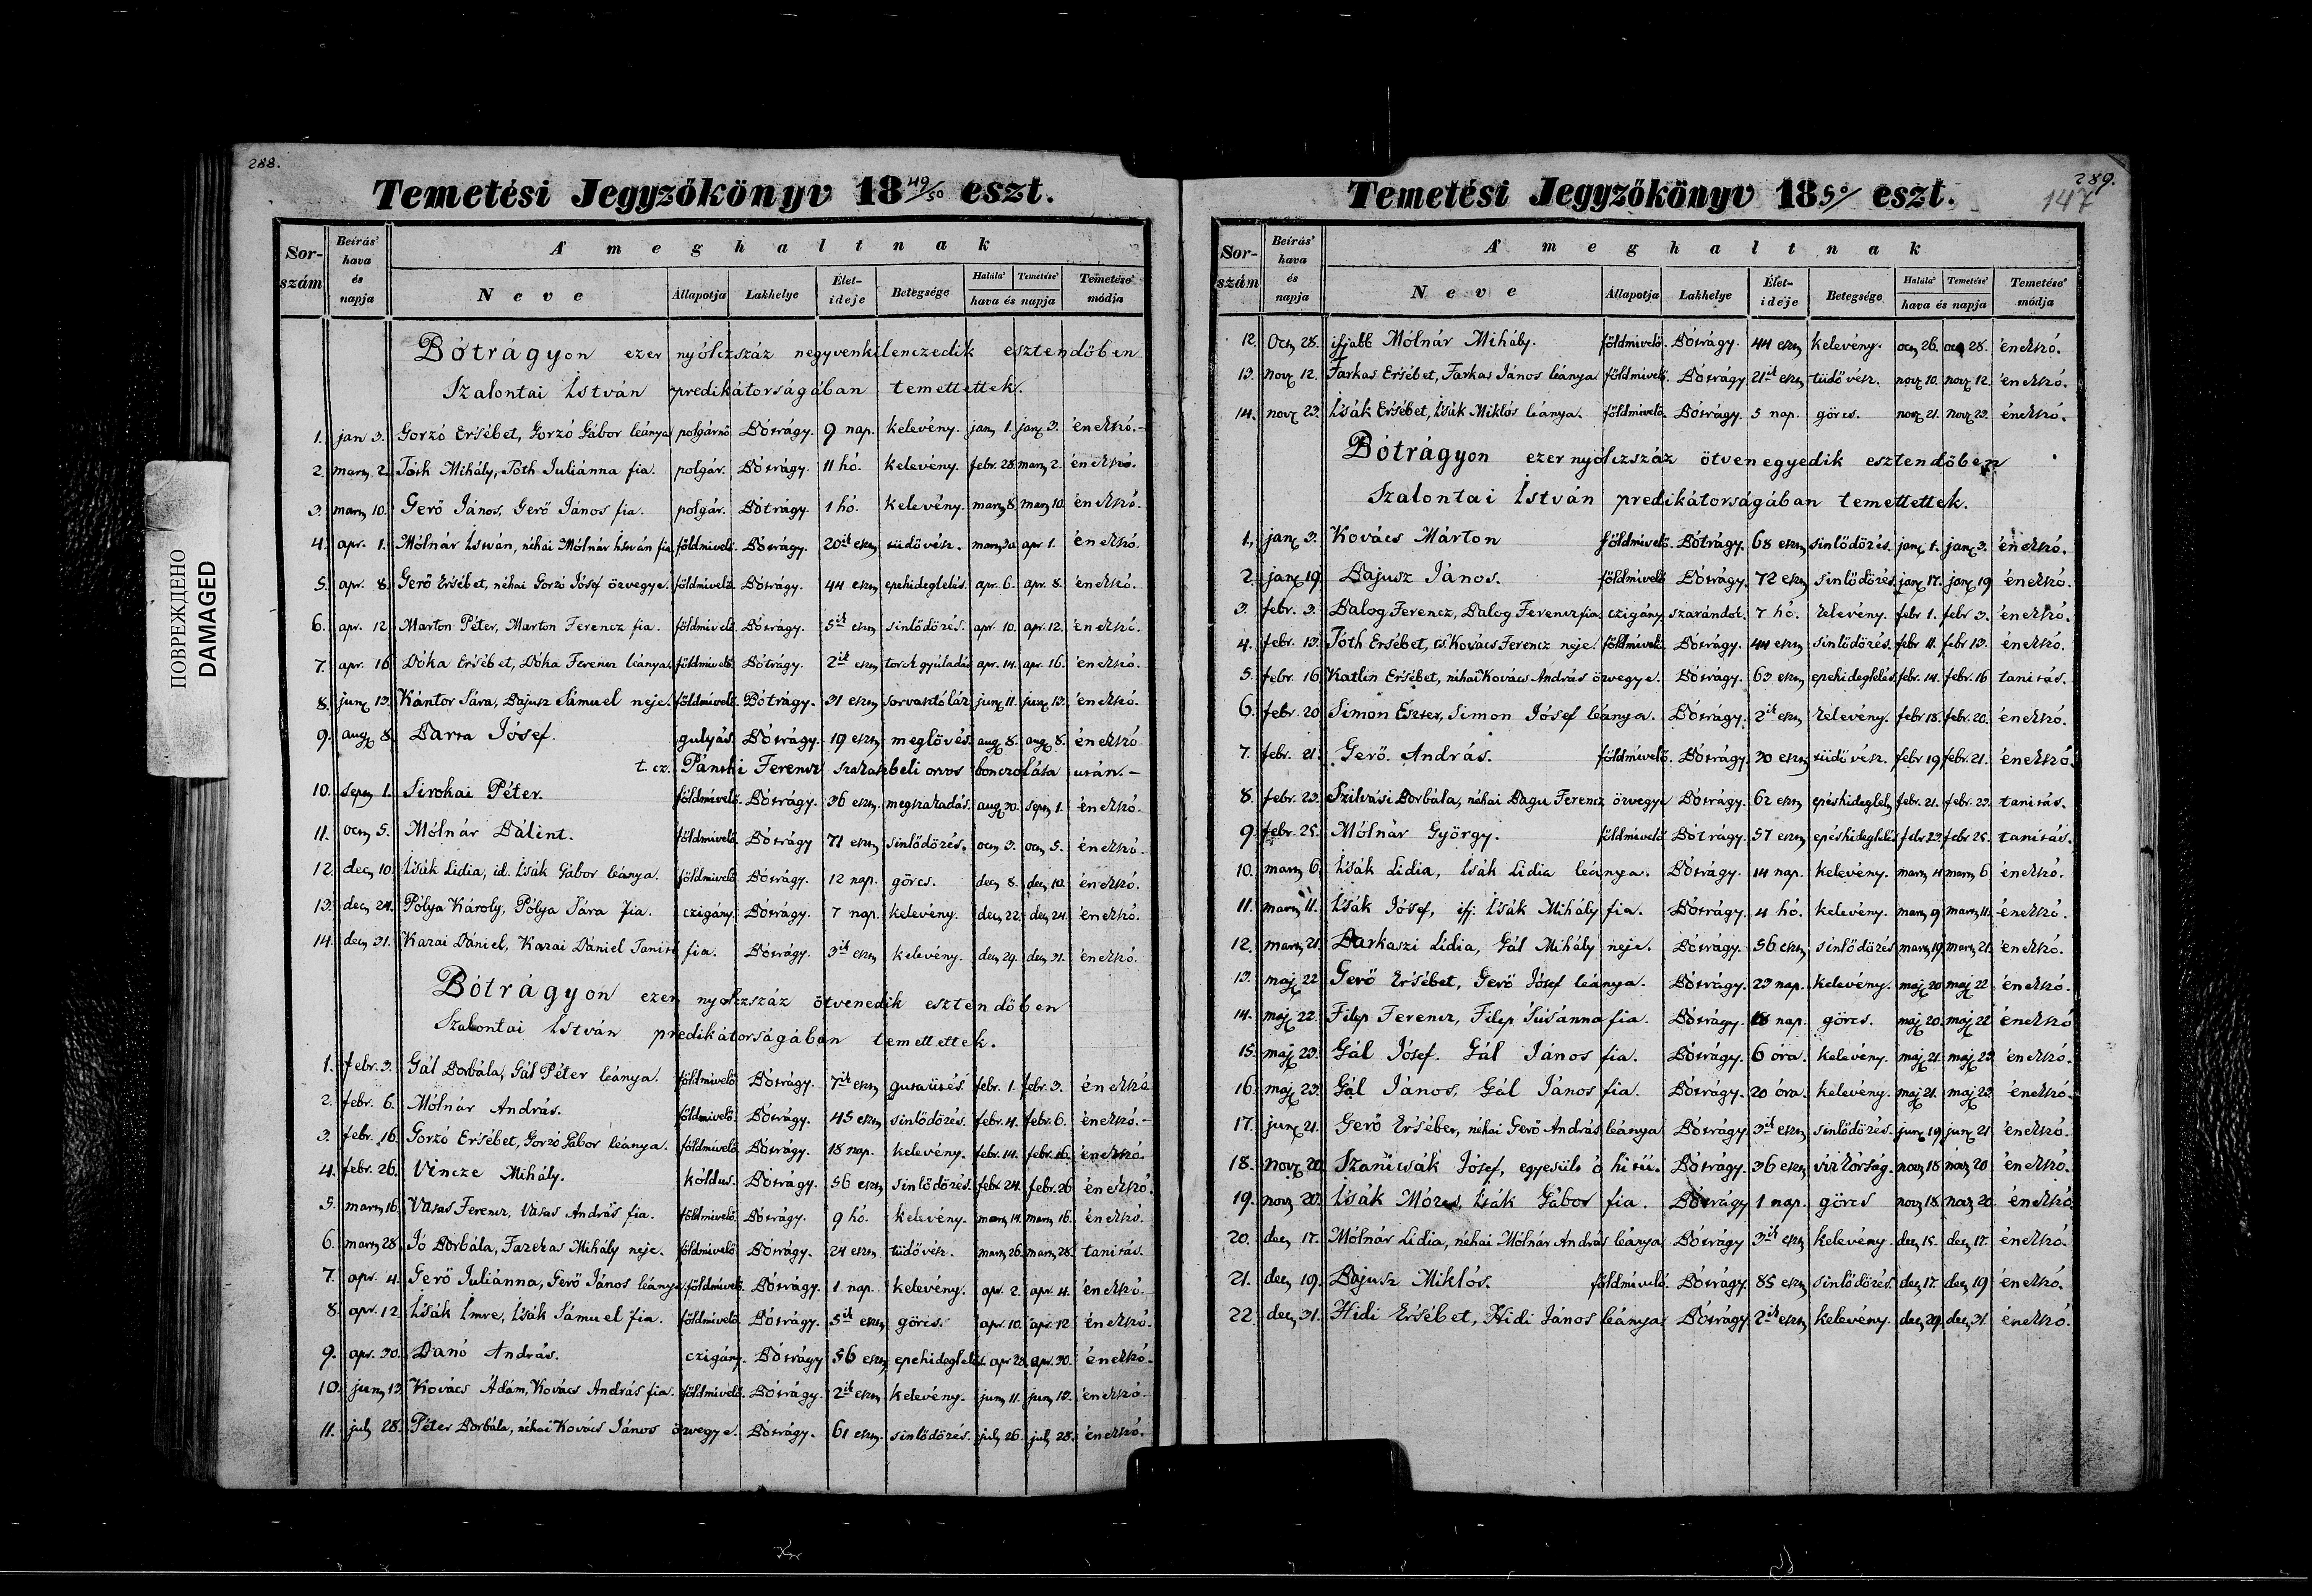 288.
Temetési Jegyzőkönyv 18 49/50 eszt.
Sor-szám Beírás' hava és napja A' meghaltnak
Neve Állapotja Lakhelye Élet-ideje Betegsége Halála' Temetése' hava és napja Temetése' módja
Bótrágyon ezer nyólczszáz negyvenkilenczedik esztendőben
Szalontai István predikátorságában temettettek.
1. jan 3. Gorzó Ersébet, Gorzó Gábor leánya polgárnő Bótrágy. 9 nap. kelevény. jan 1. jan 3. énekszó.
2. mart 2. Tóth Mihály, Tóth Juliánna fia. polgár. Bótrágy. 11 hó. kelevény. febr. 28. mart 2. énekszó.
3. mart 10. Gerő János, Gerő János fia. polgár. Bótrágy. 1 hó. kelevény. mart 8. mart 10. énekszó.
4. apr. 1. Mólnár István, néhai Mólnár István fia földmivelő. Bótrágy. 20ik eszt tüdővész. mart 30. apr 1. énekszó.
5. apr. 8. Gerő Ersébet, néhai Gorzó Jósef özvegye. földmivelő. Bótrágy. 44 eszt epehideglelés. apr. 6. apr. 8. énekszó.
6. apr. 12. Marton Péter, Marton Ferencz fia. földmivelő. Bótrágy. 5ik eszt sinlődözés. apr. 10. apr. 12. énekszó.
7. apr. 16. Dóka Ersébet, Dóka Ferencz leánya. földmivelő. Bótrágy. 2ik eszt torok gyúladás apr. 14. apr. 16. énekszó.
8. jun 13. Kántor Sára, Bajusz Sámuel neje. földmivelő. Bótrágy. 31 eszt sorvasztóláz jun 11. jun 13. énekszó.
9. aug 8. Barta Jósef. gulyás. Bótrágy. 19 eszt meglövés. aug 8. aug 8. énekszó
t. cz. Pánski Ferencz szakaszbeli orvos bonczolása után. –
10. sept 1. Sirokai Péter. földmivelő. Bótrágy. 36 eszt. megszakadás. aug 30. sept 1. énekszó.
11. oct 5. Mólnár Bálint. földmivelő. Bótrágy 71 eszt sinlődözés. oct 3. oct 5. énekszó.
12. dec 10. Isák Lidia, id. Isák Gábor leánya. földmivelő Bótrágy. 12 nap. görcs. dec 8. dec 10. énekszó.
13. dec 24. Pólya Károly, Pólya Sára fia. czigány. Bótrágy. 7 nap. kelevény. dec 22. dec 24. énekszó.
14. dec 31. Kazai Dániel, Kazai Dániel Tanitó fia. Bótrágy. 3ik eszt kelevény. dec 29. dec 31. énekszó.
Bótrágyon ezer nyolczszáz ötvenedik esztendőben
Szalontai István predikátorságában temettettek.
1. febr. 3. Gál Borbála, Gál Péter leánya. földmivelő Bótrágy. 7ik eszt gutaütés. febr. 1. febr. 3. énekszó
2. febr. 6. Mólnár András. földmivelő. Bótrágy. 45 eszt sinlődözés. febr. 4. febr. 6. énekszó.
3. febr. 16. Gorzó Ersébet, Gorzó Gábor leánya. földmivelő. Bótrágy. 18 nap. kelevény. febr. 14. febr. 16. énekszó.
4. febr. 26. Vincze Mihály. koldus. Bótrágy. 56 eszt sinlődözés. febr 24. febr. 26 énekszó.
5. mart 16. Vasas Ferencz, Vasas András fia. földmivelő. Bótrágy. 9 hó. kelevény. mart 14. mart 16. énekszó.
6. mart 28. Jó Borbála, Fazekas Mihály neje. földmivelő Bótrágy. 24 eszt tüdővész. mart 26. mart 28. tanitás.
7. apr. 4. Gerő Juliánna, Gerő János leánya. földmivelő. Bótrágy. 1 nap. kelevény. apr. 2. apr. 4. énekszó.
8. apr. 12. Isák Imre, Isák Sámuel fia. földmivelő. Bótrágy. 5ik eszt görcs. apr. 10. apr. 12 énekszó.
9. apr. 30. Danó András. czigány. Bótrágy 56 eszt epehideglelés. apr 28. apr. 30. énekszó.
10. jun 13. Kovács Ádám, Kovács András fia. földmivelő. Bótrágy. 2ik eszt kelevény. jun 11. jun 13. énekszó.
11. jul 28. Péter Borbála, néhai Kovács János özvegye. Bótrágy. 61 eszt. sinlődözés. jul 26. jul 28. énekszó.
289.
147
Temetési Jegyzőkönyv 18 50/ eszt.
Sor-szám Beírás' hava és napja A' meghaltnak
Neve Állapotja Lakhelye Élet-ideje Betegsége Halála' Temetése' hava és napja Temetése' módja
12. Oct 28. ifjabb Mólnár Mihály. földmivelő. Bótrágy. 44 eszt kelevény. oct 26. oct 28. énekszó.
13. nov 12. Farkas Ersébet, Farkas János leánya földmivelő. Bótrágy. 21ik eszt tüdővész. nov 10. nov 12. énekszó.
14. nov 23. Isák Ersébet, Isák Miklós leánya. földmivelő. Bótrágy. 5 nap. görcs. nov 21. nov 23. énekszó.
Bótrágyon ezer nyólczszáz ötvenegyedik esztendőben
Szalontai István predikátorságában temettettek.
1. jan 3. Kovács Márton földmivelő. Bótrágy. 68 eszt sinlődözés. jan 1. jan 3. énekszó.
2. jan 19. Bajusz János. földmivelő Bótrágy. 72 eszt sinlődözés. jan 17. jan 19 énekszó.
3. febr. 3. Balog Ferencz, Balog Ferencz fia czigány szarándok. 7 hó. kelevény. febr 1. febr 3. énekszó.
4. febr. 13. Tóth Ersébet, cs. Kovács Ferencz neje. földmivelő. Bótrágy. 44 eszt sinlődözés. febr 11. febr 13. énekszó.
5. febr. 16. Katlin Ersébet, néhai Kovács András özvegye. Bótrágy. 63 eszt epehideglelés. febr. 14. febr. 16 tanitás.
6. febr. 20 Simon Eszter, Simon Jósef leánya. Bótrágy. 2ik eszt kelevény. febr 18. febr. 20. énekszó.
7. febr. 21. Gerő András. földmivelő. Bótrágy. 30 eszt tüdővész. febr 19 febr. 21. énekszó.
8. febr. 23. Szilvási Borbála, néhai Dagu Ferencz özvegye Bótrágy. 62 eszt epéshideglel. febr. 21. febr. 23. tanitás.
9. febr. 25. Mólnár György. földmivelő Bótrágy. 57 eszt epéshideglelés febr 23. febr 25. tanitás.
10. mart 6. Isák Lidia, Isák Lidia leánya. Bótrágy. 14 nap. kelevény. mart 4 mart 6 énekszó.
11. mart 11. Isák Jósef, ifj. Isák Mihály fia. Bótrágy. 4 hó. kelevény. mart 9 mart 11. énekszó.
12. mart 21. Barkaszi Lidia, Gál Mihály neje. Bótrágy. 56 eszt sinlődözés mart 19. mart 21. énekszó.
13. maj 22 Gerő Ersébet, Gerő Jósef leánya. Bótrágy. 23 nap. kelevény. maj 20 maj 22 énekszó.
14. maj 22. Filep Ferencz, Filep Súsánna fia. Bótrágy. 18 nap. görcs. maj 20. maj 22 énekszó
15. maj 23. Gál Jósef. Gál János fia. Bótrágy. 6 óra. kelevény. maj 21. maj 23. énekszó.
16. maj 23. Gál János, Gál János fia. Bótrágy. 20 óra. kelevény. maj 21. maj 23. énekszó.
17. jun 21. Gerő Ersébet, néhai Gerő András leánya Bótrágy. 3ik eszt sinlődözés. jun 19 jun 21 énekszó.
18. nov 20 Szanicsák Jósef, egyesült ó hitü. Bótrágy. 36 eszt vizkórság. nov 18 nov 20 énekszó.
19. nov 20. Isák Mózes, Isák Gábor fia. Bótrágy 1 nap. görcs nov 18. nov 20. énekszó
20. dec 17. Mólnár Lidia, néhai Mólnár András leánya Bótrágy 3ik eszt kelevény. dec 15. dec 17. énekszó.
21. dec 19. Bajusz Miklós. földmivelő. Bótrágy. 85 eszt sinlődözés. dec 17. dec 19 énekszó.
22. dec 31. Hidi Ersébet, Hidi János leánya Bótrágy 2ik eszt kelevény. dec 29. dec 31. énekszó.
ПОВРЕЖДЕНО
DAMAGED